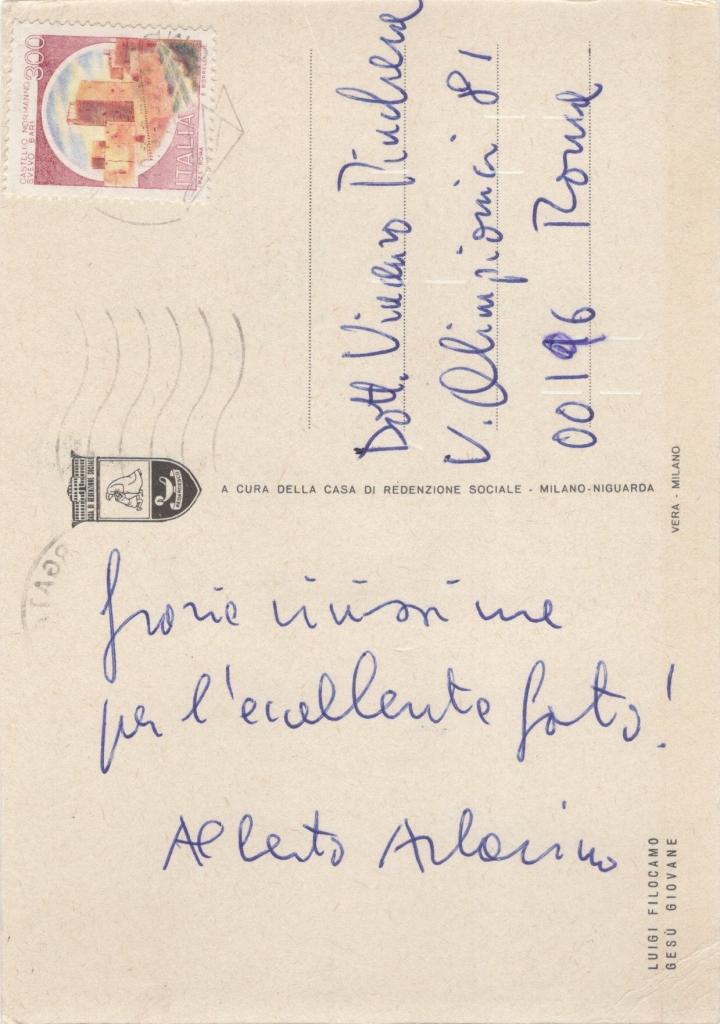 Grazie vivissime
per l'eccellente foto!
Alberto
LUIGI FILOCAMO
GESÙ GIOVANE
A CURA DELLA CASA DI REDENZIONE SOCIALE - MILANO-NIGUARDA
VERA - MILANO
CASA DI REDENZIONE SOCIALE
300
CASTELLO NORMANNO
SVEVO BARI
ITALIA
Dott. Vincenzo
V. Olimpionici 81
00196 Roma